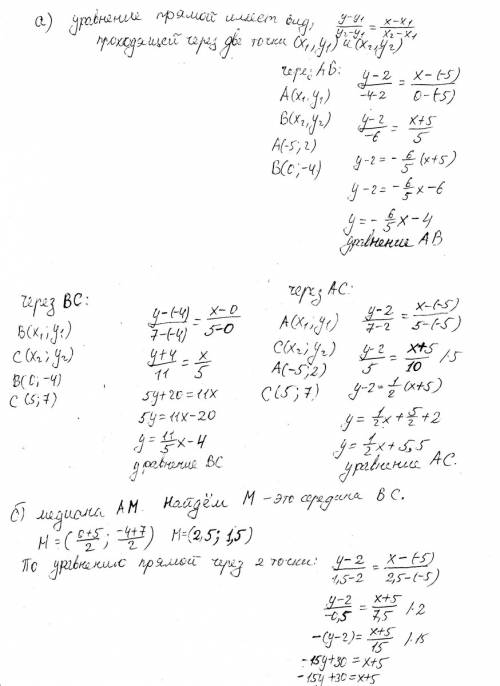 а) уравнение прямой имеет вид,
проходящей через две точки (x₁,y₁) и (x₂,y₂)
(y-y₁)/(y₂-y₁) = (x-x₁)/(x₂-x₁)
через AB:
A(x₁,y₁)
B(x₂,y₂)
A(-5;2)
B(0;-4)
(y-2)/(-4-2) = (x-(-5))/(0-(-5))
(y-2)/(-6) = (x+5)/5
y-2 = -6/5(x+5)
y-2 = -6/5x-6
y = -6/5x-4
уравнение AB
через BC:
B(x₁;y₁)
C(x₂;y₂)
B(0;-4)
C(5;7)
(y-(-4))/(7-(-4)) = (x-0)/(5-0)
(y+4)/11 = x/5
5y+20=11x
5y=11x-20
y = 11/5x-4
уравнение BC
через AC:
A(x₁;y₁)
C(x₂;y₂)
A(-5;2)
C(5;7)
(y-2)/(7-2) = (x-(-5))/(5-(-5))
(y-2)/5 = (x+5)/10 /·5
y-2 = 1/2(x+5)
y = 1/2x+5/2+2
y = 1/2x+5,5
уравнение AC.
б) медиана AM. Найдём M – это середина BC.
M = ((0+5)/2; (-4+7)/2) M=(2,5; 1,5)
По уравнению прямой через 2 точки:
(y-2)/(1,5-2) = (x-(-5))/(2,5-(-5))
(y-2)/(-0,5) = (x+5)/7,5 /:2
-(y-2) = (x+5)/15 /·15
-15y+30=x+5
-15y+30=x+5